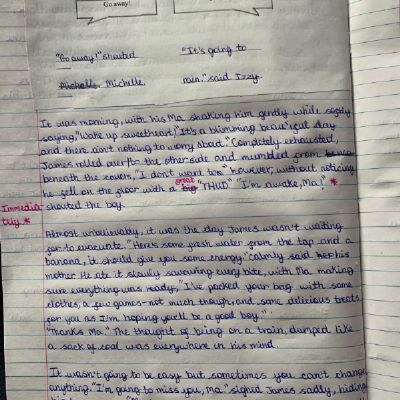 Go away!
"Go away!" shouted "It's going to
Michelle. Michelle rain." said Izzy.
It was morning, with his Ma shaking him gently while softly
saying, "Wake up sweetheart." "It's a blimming beautiful day
and there ain't nothing to worry about." Completely exhausted,
James rolled over to the other side and mumbled from
beneath the covers, "I don't want to." however, without noticing
he fell on the floor with a big great "THUD" "I'm awake, Ma!" *
Immediatly * shouted the boy.
Almost unwillingly, it was the day James wasn't waiting
for to evacuate. "Here's some fresh water from the tap and a
banana, it should give you some energy." calmly said his
mother. He ate it slowly savouring every bite, with Ma making
sure everything was ready, "I've packed your bag with some
clothes, a few games-not much though, and some delicious treats
for you as I'm hoping you'll be a good boy."
"Thanks Ma." The thought of being on a train, dumped like
a sack of coal was everywhere in his mind.
It wasn't going to be easy but sometimes you can't change
anything. "I'm going to miss you, Ma." sighed James sadly, hiding